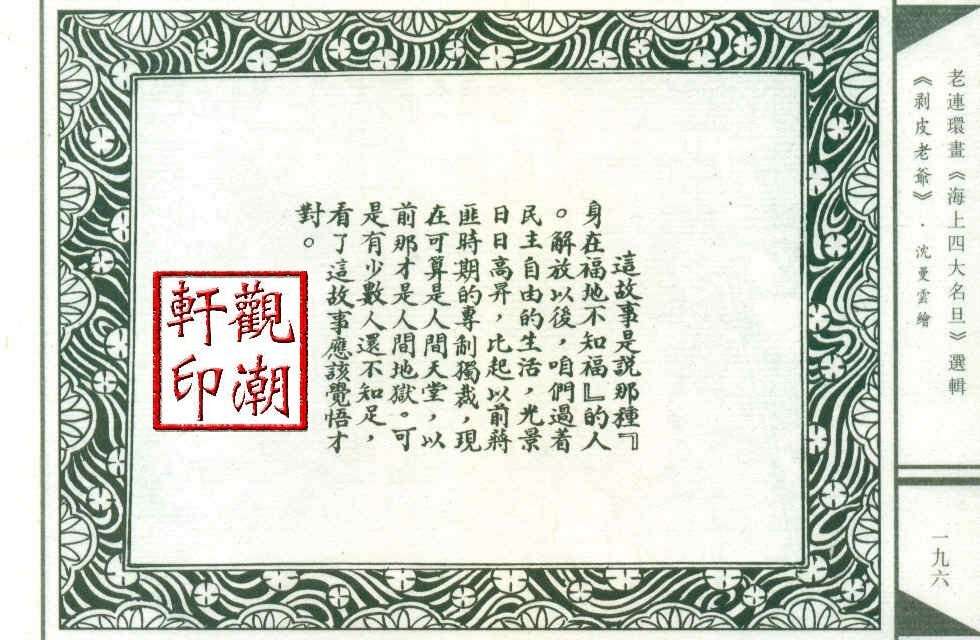 老連環畫《海上四大名旦》選輯
《剥皮老爺》·沈曼雲繪
一九六
這故事是説那種『
身在福地不知福』的人
。解放以後，咱們過着
民主自由的生活，光景
日日高昇，比起以前蔣
匪時期的專制獨裁，現
在可算是人間天堂，以
前那才是人間地獄。可
是有少數人還不知足，
看了這故事應該覺悟才
對。
觀潮
軒印